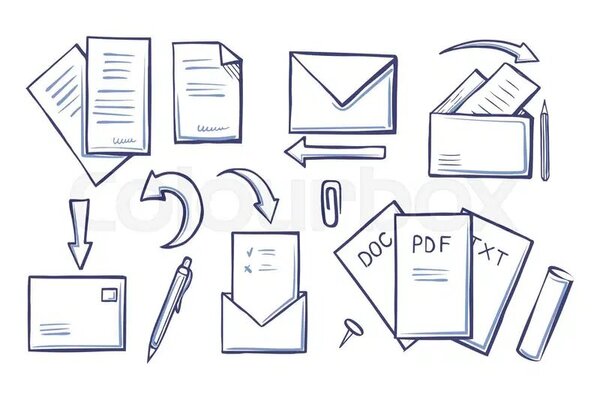 colourbox
DOC
PDF
TXT